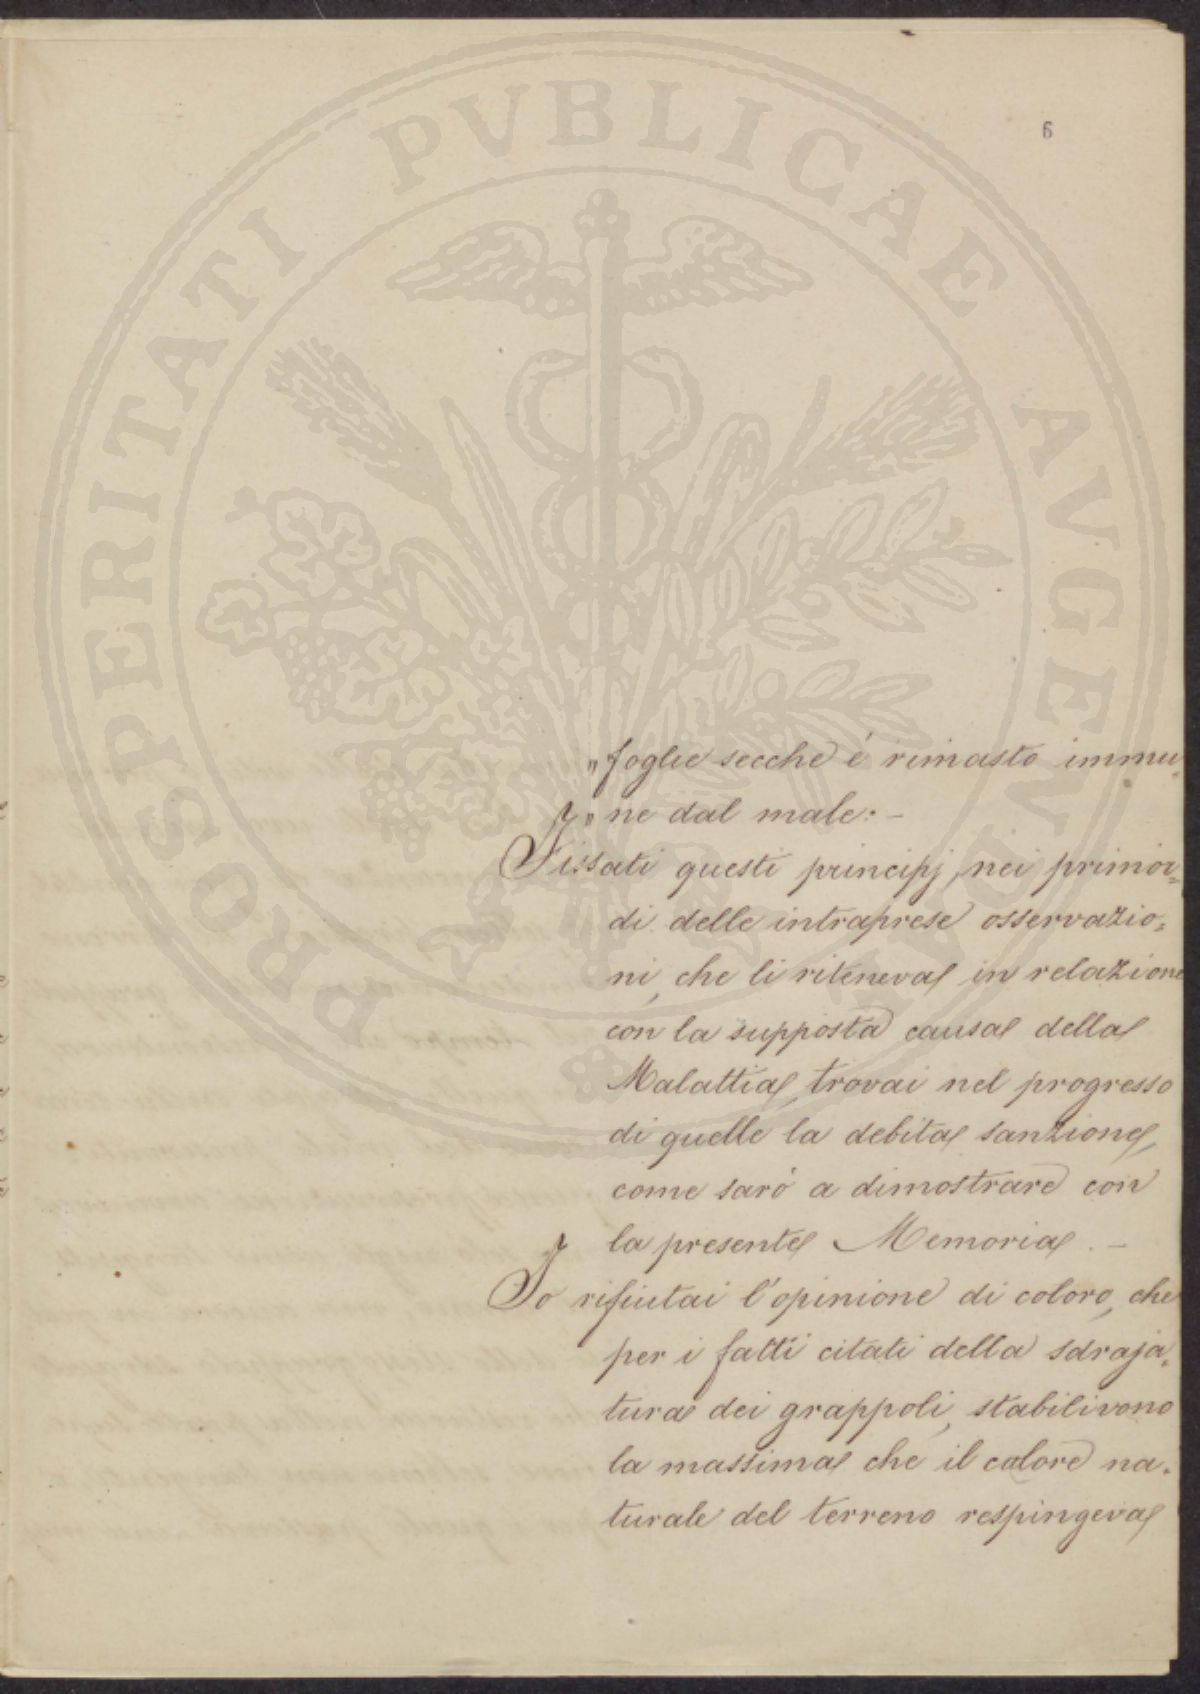 6
PROSPERITATI PVBLICAE AVGENDAE
„ foglie secche é rimasto immu„
„ ne dal male: –
Fissati questi principj, nei primor=
di delle intraprese osservazio=
ni, che li riteneva in relazione
con la supposta causa della
Malattia, trovai nel progresso
di quelle la debita sanzione,
come saró a dimostrare con
la presente Memoria. –
Io rifiutai l'opinione di coloro, che
per i fatti citati della sdraja=
tura dei grappoli, stabilivono
la massima che il calore na=
turale del terreno respingeva